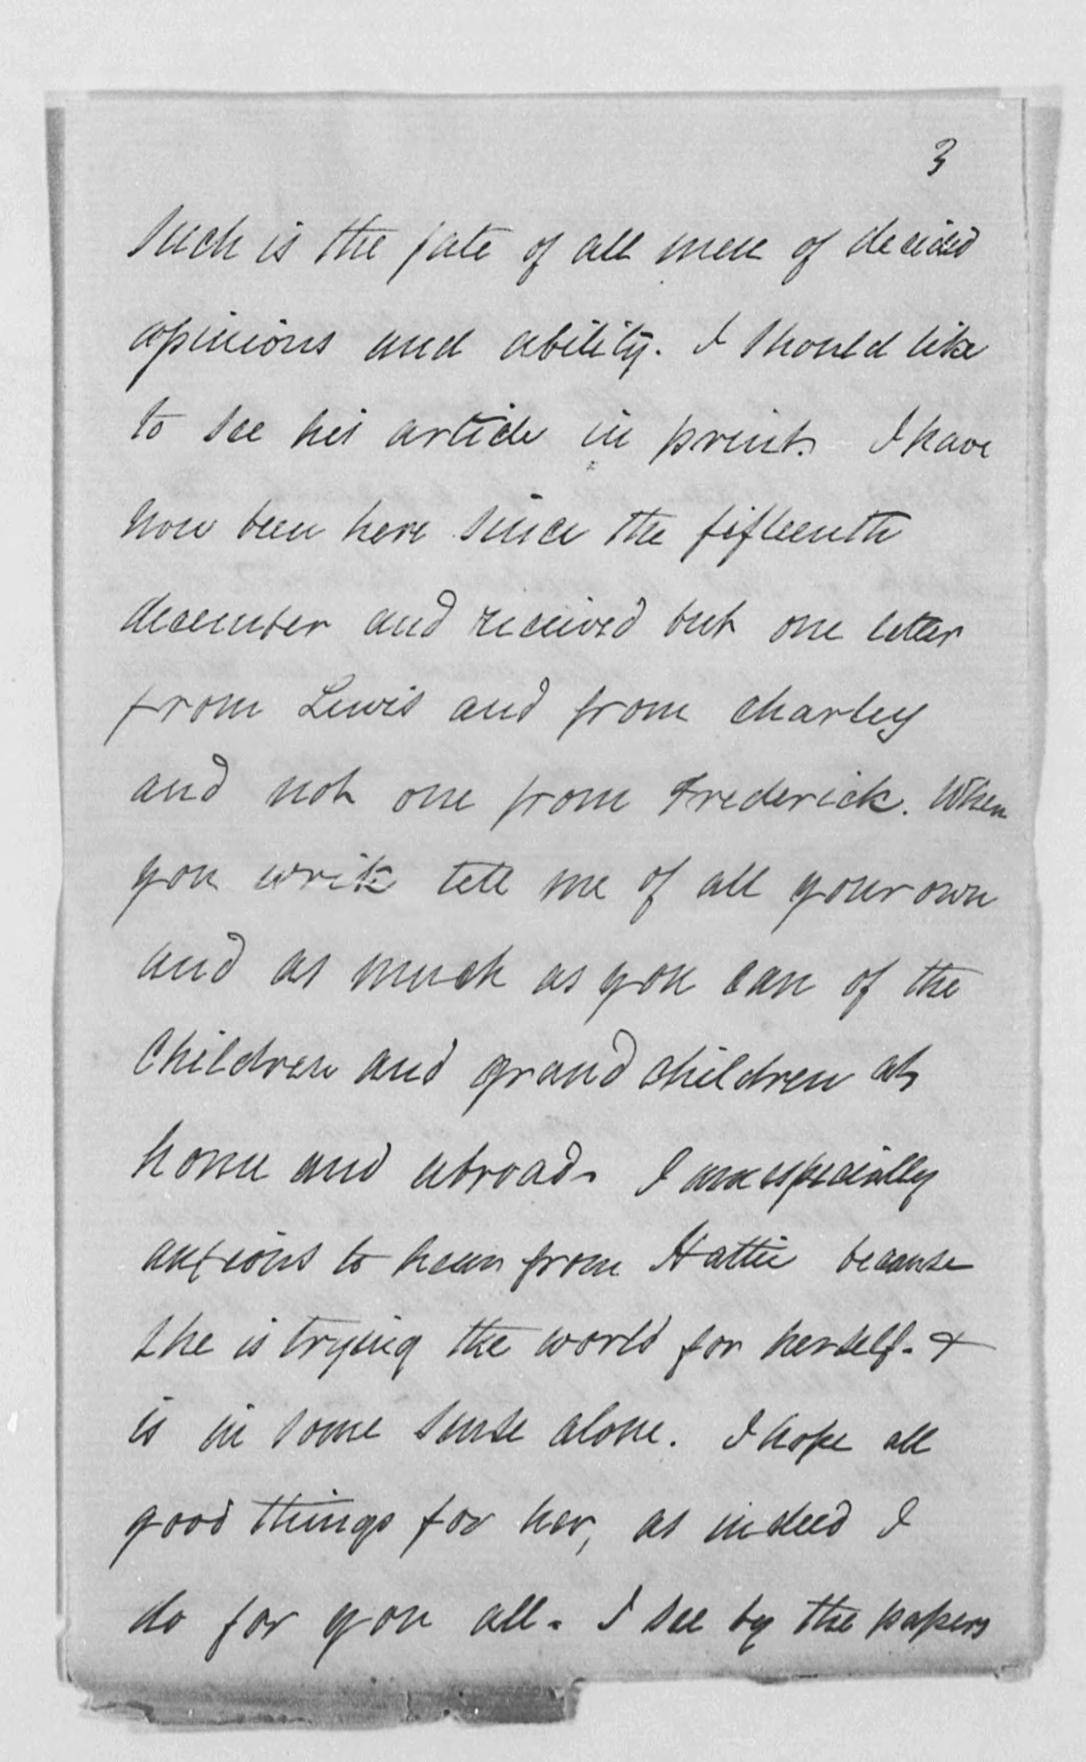 3
Such is the fate of all men of decided
opinions and ability. I should like
to see his article in print. I have
now been here since the fifteenth
december and received but one letter
from Lewis and from charley
and not one from Frederick. When
you write tell me of all your own
and as much as you can of the
Children and grand children at
home and abroad. I am especially
anxious to hear from Hattie because
she is trying the world for herself. &
is in some sense alone. I hope all
good things for her, as indeed I
do for you all. I see by the papers